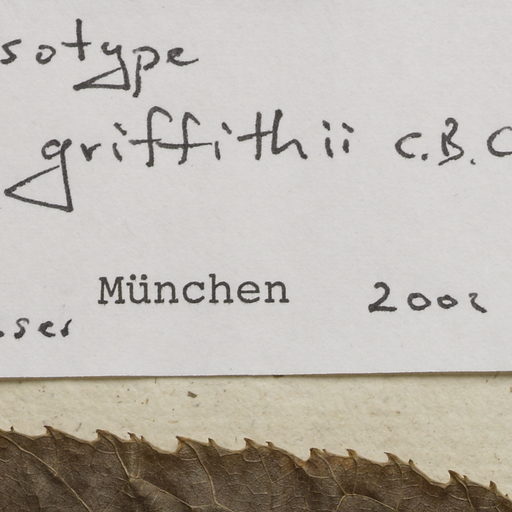 sotype
griffithii C.B.C
München 2002
ser